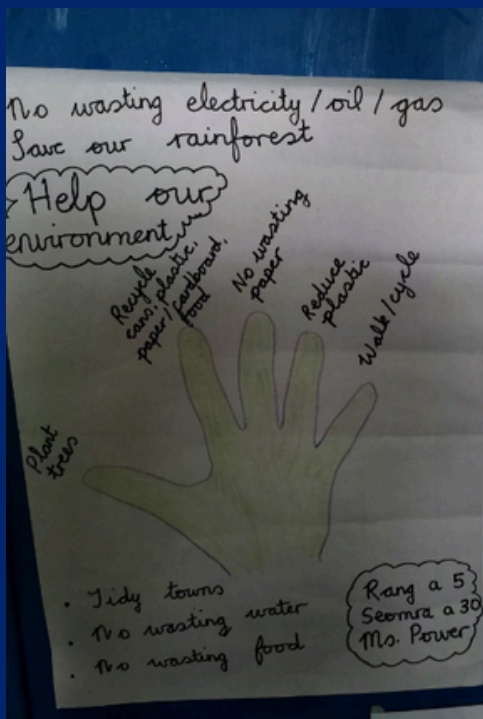 No wasting electricity/oil/gas
Save our rainforest
Help our
environment
Recycle
cans, plastic,
paper/cardboard,
food
No wasting
paper
Reduce
plastic
Walk/cycle
Plant
trees
• Tidy towns
• No wasting water
• No wasting food
Rang a 5
Seomra a 30
Ms. Power